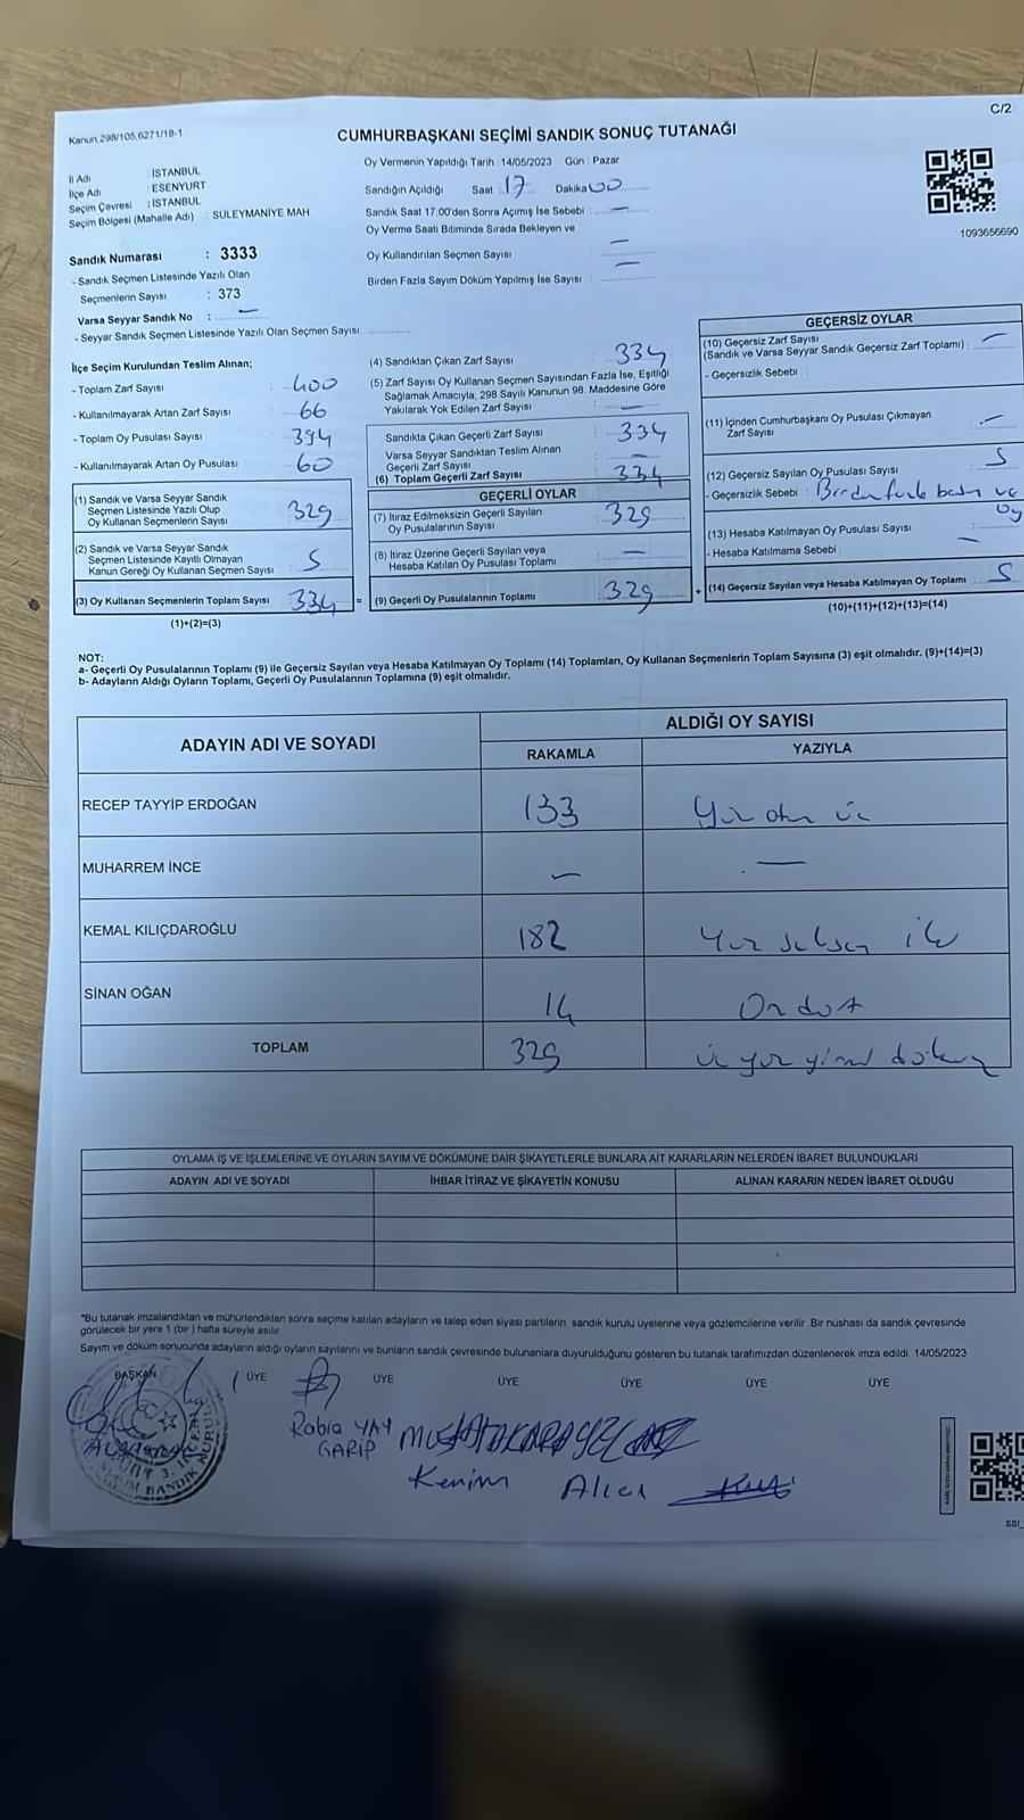 C/2
Kanun 298/105,6271/18-1
CUMHURBAŞKANI SEÇİMİ SANDIK SONUÇ TUTANAĞI
İl Adı : İSTANBUL
İlçe Adı : ESENYURT
Seçim Çevresi : İSTANBUL
Seçim Bölgesi (Mahalle Adı) SÜLEYMANİYE MAH
Sandık Numarası : 3333
- Sandık Seçmen Listesinde Yazılı Olan
Seçmenlerin Sayısı : 373
Varsa Seyyar Sandık No : —
- Seyyar Sandık Seçmen Listesinde Yazılı Olan Seçmen Sayısı
Oy Vermenin Yapıldığı Tarih : 14/05/2023 Gün : Pazar
Sandığın Açıldığı Saat 17 Dakika 00
Sandık Saat 17:00'den Sonra Açımış İse Sebebi : —
Oy Verme Saati Bitiminde Sırada Bekleyen ve
Oy Kullandırılan Seçmen Sayısı —
Birden Fazla Sayım Döküm Yapılmış İse Sayısı —
1093656690
İlçe Seçim Kurulundan Teslim Alınan;
- Toplam Zarf Sayısı 400
- Kullanılmayarak Artan Zarf Sayısı 66
- Toplam Oy Pusulası Sayısı 394
- Kullanılmayarak Artan Oy Pusulası 60
(1) Sandık ve Varsa Seyyar Sandık
Seçmen Listesinde Yazılı Olup
Oy Kullanan Seçmenlerin Sayısı 329
(2) Sandık ve Varsa Seyyar Sandık
Seçmen Listesinde Kayıtlı Olmayan
Kanun Gereği Oy Kullanan Seçmen Sayısı 5
(3) Oy Kullanan Seçmenlerin Toplam Sayısı 334 =
(1)+(2)=(3)
(4) Sandıktan Çıkan Zarf Sayısı 334
(5) Zarf Sayısı Oy Kullanan Seçmen Sayısından Fazla İse, Eşitliği
Sağlamak Amacıyla, 298 Sayılı Kanunun 98. Maddesine Göre
Yakılarak Yok Edilen Zarf Sayısı —
Sandıkta Çıkan Geçerli Zarf Sayısı 334
Varsa Seyyar Sandıktan Teslim Alınan
Geçerli Zarf Sayısı —
(6) Toplam Geçerli Zarf Sayısı 334
GEÇERLİ OYLAR
(7) İtiraz Edilmeksizin Geçerli Sayılan
Oy Pusulalarının Sayısı 329
(8) İtiraz Üzerine Geçerli Sayılan veya
Hesaba Katılan Oy Pusulası Toplamı —
(9) Geçerli Oy Pusulalarının Toplamı 329 +
GEÇERSİZ OYLAR
(10) Geçersiz Zarf Sayısı
(Sandık ve Varsa Seyyar Sandık Geçersiz Zarf Toplamı) : —
- Geçersizlik Sebebi
(11) İçinden Cumhurbaşkanı Oy Pusulası Çıkmayan
Zarf Sayısı —
(12) Geçersiz Sayılan Oy Pusulası Sayısı 5
- Geçersizlik Sebebi : Birden fazla ve
oy
(13) Hesaba Katılmayan Oy Pusulası Sayısı —
- Hesaba Katılmama Sebebi
(14) Geçersiz Sayılan veya Hesaba Katılmayan Oy Toplamı 5
(10)+(11)+(12)+(13)=(14)
NOT:
a- Geçerli Oy Pusulalarının Toplamı (9) ile Geçersiz Sayılan veya Hesaba Katılmayan Oy Toplamı (14) Toplamları, Oy Kullanan Seçmenlerin Toplam Sayısına (3) eşit olmalıdır. (9)+(14)=(3)
b- Adayların Aldığı Oyların Toplamı, Geçerli Oy Pusulalarının Toplamına (9) eşit olmalıdır.
ADAYIN ADI VE SOYADI
ALDIĞI OY SAYISI
RAKAMLA YAZIYLA
RECEP TAYYİP ERDOĞAN 133 Yüz otuz üç
MUHARREM İNCE — —
KEMAL KILIÇDAROĞLU 182 Yüz seksen iki
SİNAN OĞAN 14 On dört
TOPLAM 329 üç yüz yirmi dokuz
OYLAMA İŞ VE İŞLEMLERİNE VE OYLARIN SAYIM VE DÖKÜMÜNE DAİR ŞİKAYETLERLE BUNLARA AİT KARARLARIN NELERDEN İBARET BULUNDUKLARI
ADAYIN ADI VE SOYADI İHBAR İTİRAZ VE ŞİKAYETİN KONUSU ALINAN KARARIN NEDEN İBARET OLDUĞU
*Bu tutanak imzalandıktan ve mühürlendikten sonra seçime katılan adayların ve talep eden siyasi partilerin sandık kurulu üyelerine veya gözlemcilerine verilir. Bir nüshası da sandık çevresinde
görülecek bir yere 1 (bir) hafta süreyle asılır
Sayım ve döküm sonucunda adayların aldığı oyların sayılarını ve bunların sandık çevresinde bulunanlara duyurulduğunu gösteren bu tutanak tarafımızdan düzenlenerek imza edildi. 14/05/2023
BAŞKAN ÜYE ÜYE ÜYE ÜYE ÜYE ÜYE
Rabia YAY
GARİP
MUSTAFA KARAGÖZ
Kerim Alıcı